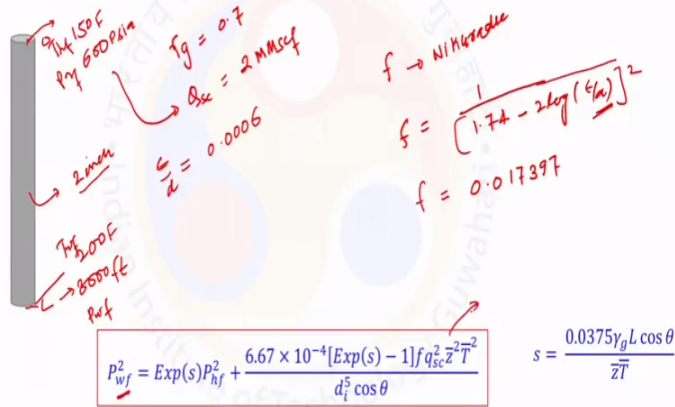 Thf 150F
Phf 600 Psia
γg = 0.7
Qsc = 2 MMscf
ε/d = 0.0006
2 inch
Twf 200F
8000 ft
Pwf
f → Nikuradse
f = 1 / [1.74 - 2 log (2ε/d)]²
f = 0.017397
P²wf = Exp(s)P²hf + 6.67 × 10⁻⁴[Exp(s) − 1]f q²sc z̄² T̄² / d⁵i cos θ
s = 0.0375γgL cos θ / z̄T̄